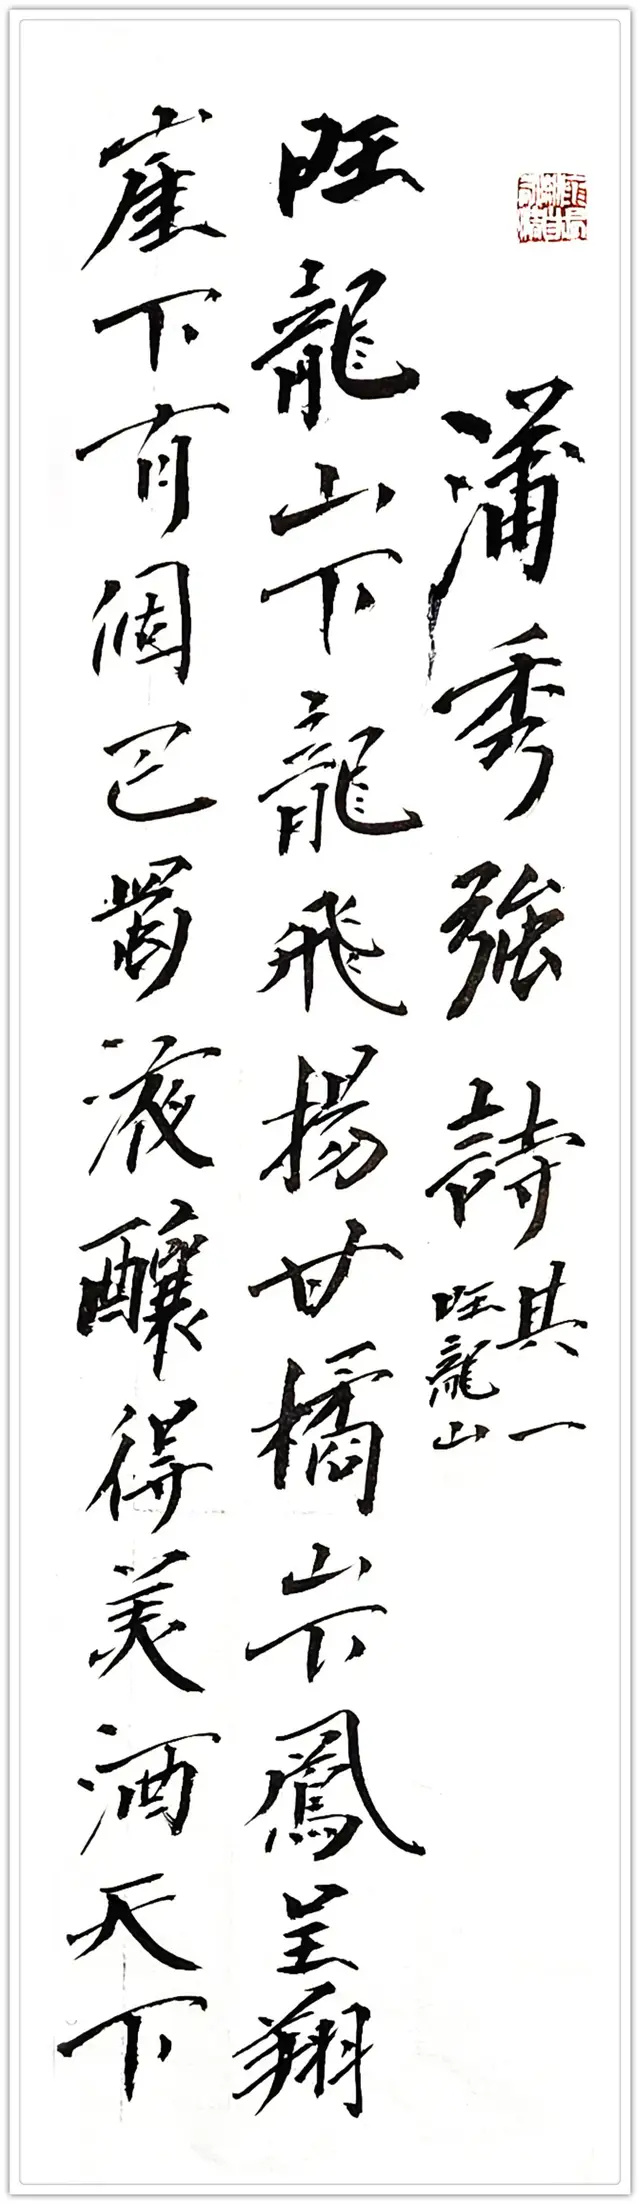 蒲秀强詩其一
旺龍山
旺龍山下龍飛揚廿橘山下鳳呈翔
崖下有個巴蜀液釀得美酒天下